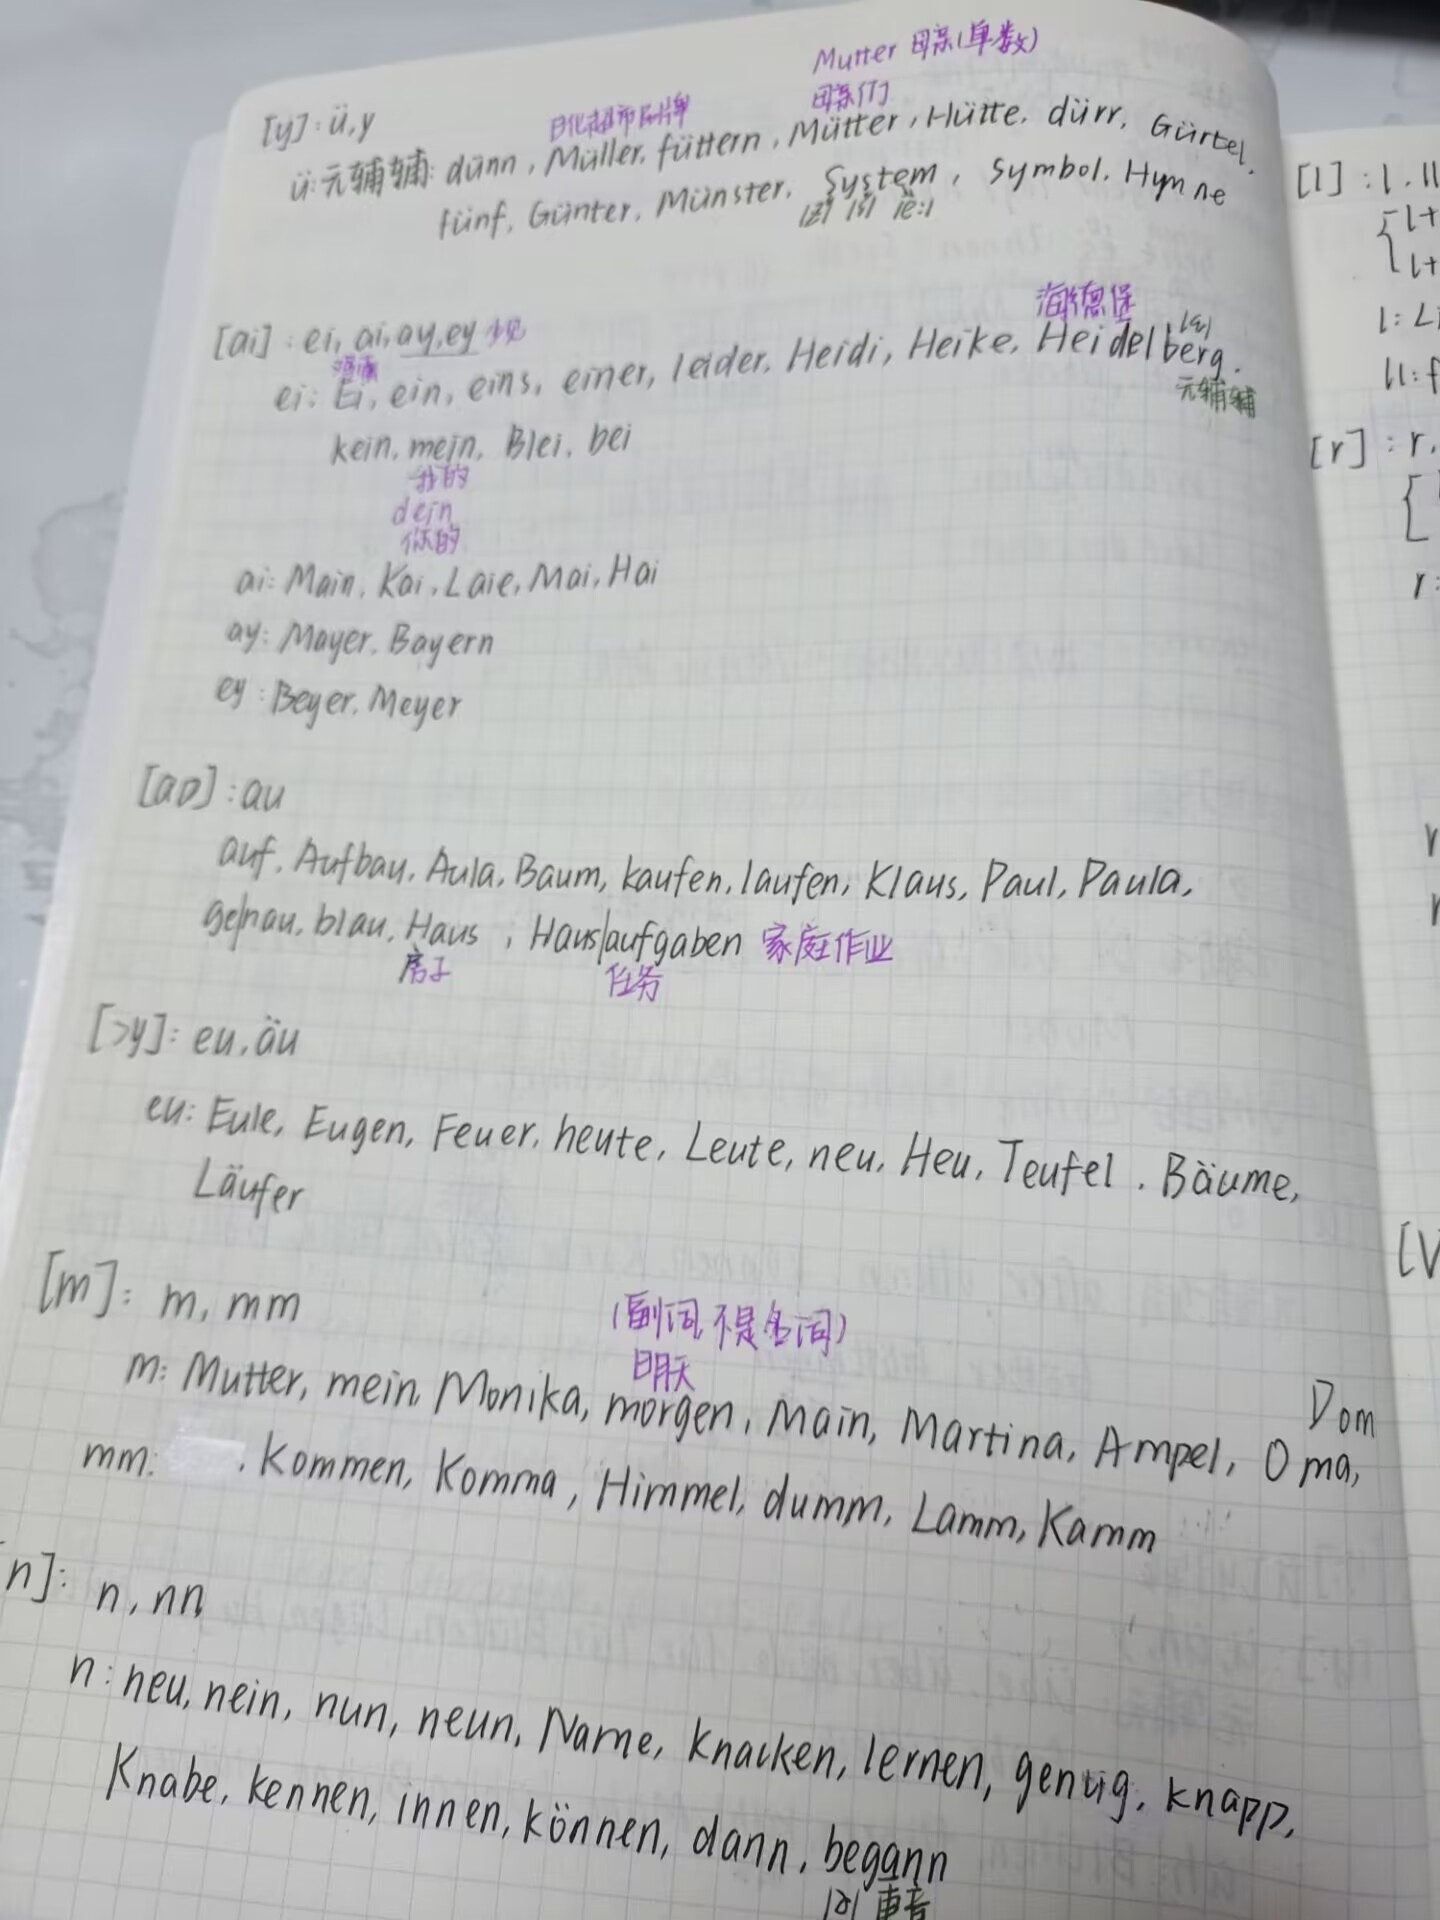 Mutter 母亲(单数)
日化超市品牌 母亲们
[y]: ü, y
ü: 元辅辅: dünn, Müller, füttern, Mütter, Hütte, dürr, Gürtel,
fünf, Günter, Münster, System, symbol, Hymne
[z] [s] [e:]
海德堡
[ai]: ei, ai, ay, ey 少见
[ε]
ei: Ei, ein, eins, einer, leider, Heidi, Heike, Heidelberg.
元辅辅
kein, mein, Blei, bei
我的
dein
你的
ai: Main, Kai, Laie, Mai, Hai
ay: Mayer, Bayern
ey: Beyer, Meyer
[ao]: au
auf, Aufbau, Aula, Baum, kaufen, laufen, Klaus, Paul, Paula,
ge|nau, blau, Haus, Haus|aufgaben 家庭作业
房子 任务
[ɔy]: eu, äu
eu: Eule, Eugen, Feuer, heute, Leute, neu, Heu, Teufel. Bäume,
Läufer
[m]: m, mm
(副词, 不是名词)
明天
Dom
m: Mutter, mein, Monika, morgen, Main, Martina, Ampel, Oma,
mm: , Kommen, Komma, Himmel, dumm, Lamm, Kamm
n]: n, nn
n: neu, nein, nun, neun, Name, knacken, lernen, genug, knapp,
Knabe, kennen, innen, können, dann, begann
[a] 重音
[l]: l, ll
l+
l+
l: Li
ll: f
[r]: r,
r:
[V